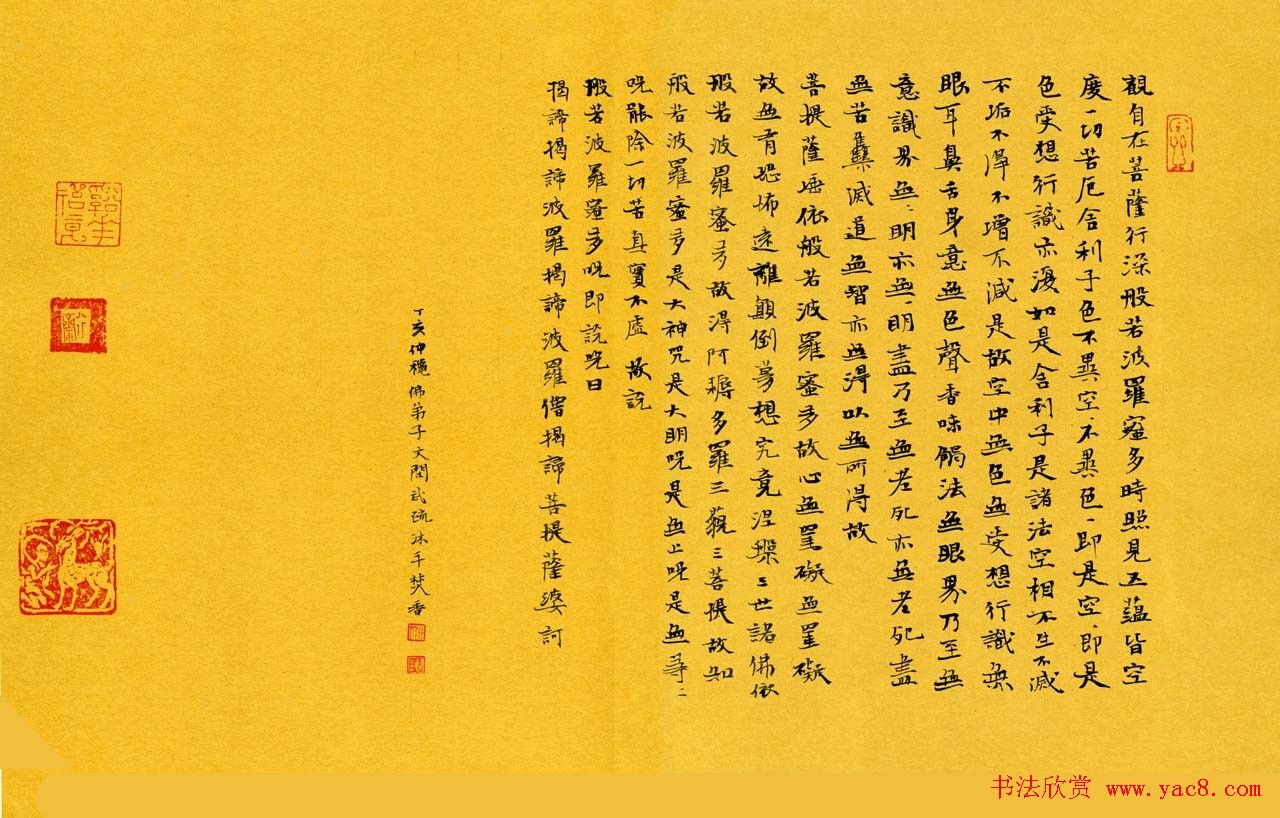 觀自在菩薩行深般若波羅蜜多時照見五蘊皆空
度一切苦厄舍利子色不異空、不異色、即是空、即是
色受想行識亦復如是舍利子是諸法空相不生不滅
不垢不淨不增不減是故空中無色無受想行識無
眼耳鼻舌身意無色聲香味觸法無眼界乃至無
意識界無、明亦無、明盡乃至無老死亦無老死盡
無苦集滅道無智亦無得以無所得故
菩提薩埵依般若波羅蜜多故心無罣礙無罣礙
故無有恐怖遠離顛倒夢想究竟涅槃三世諸佛依
般若波羅蜜多故得阿耨多羅三藐三菩提故知
般若波羅蜜多是大神咒是大明咒是無上咒是無等〻
咒能除一切苦真實不虛故說
般若波羅蜜多咒即說咒曰
揭諦揭諦波羅揭諦波羅僧揭諦菩提薩婆訶
丁亥仲穐佛弟子文閑武疏沐手焚香
书法欣赏 www.yac8.com